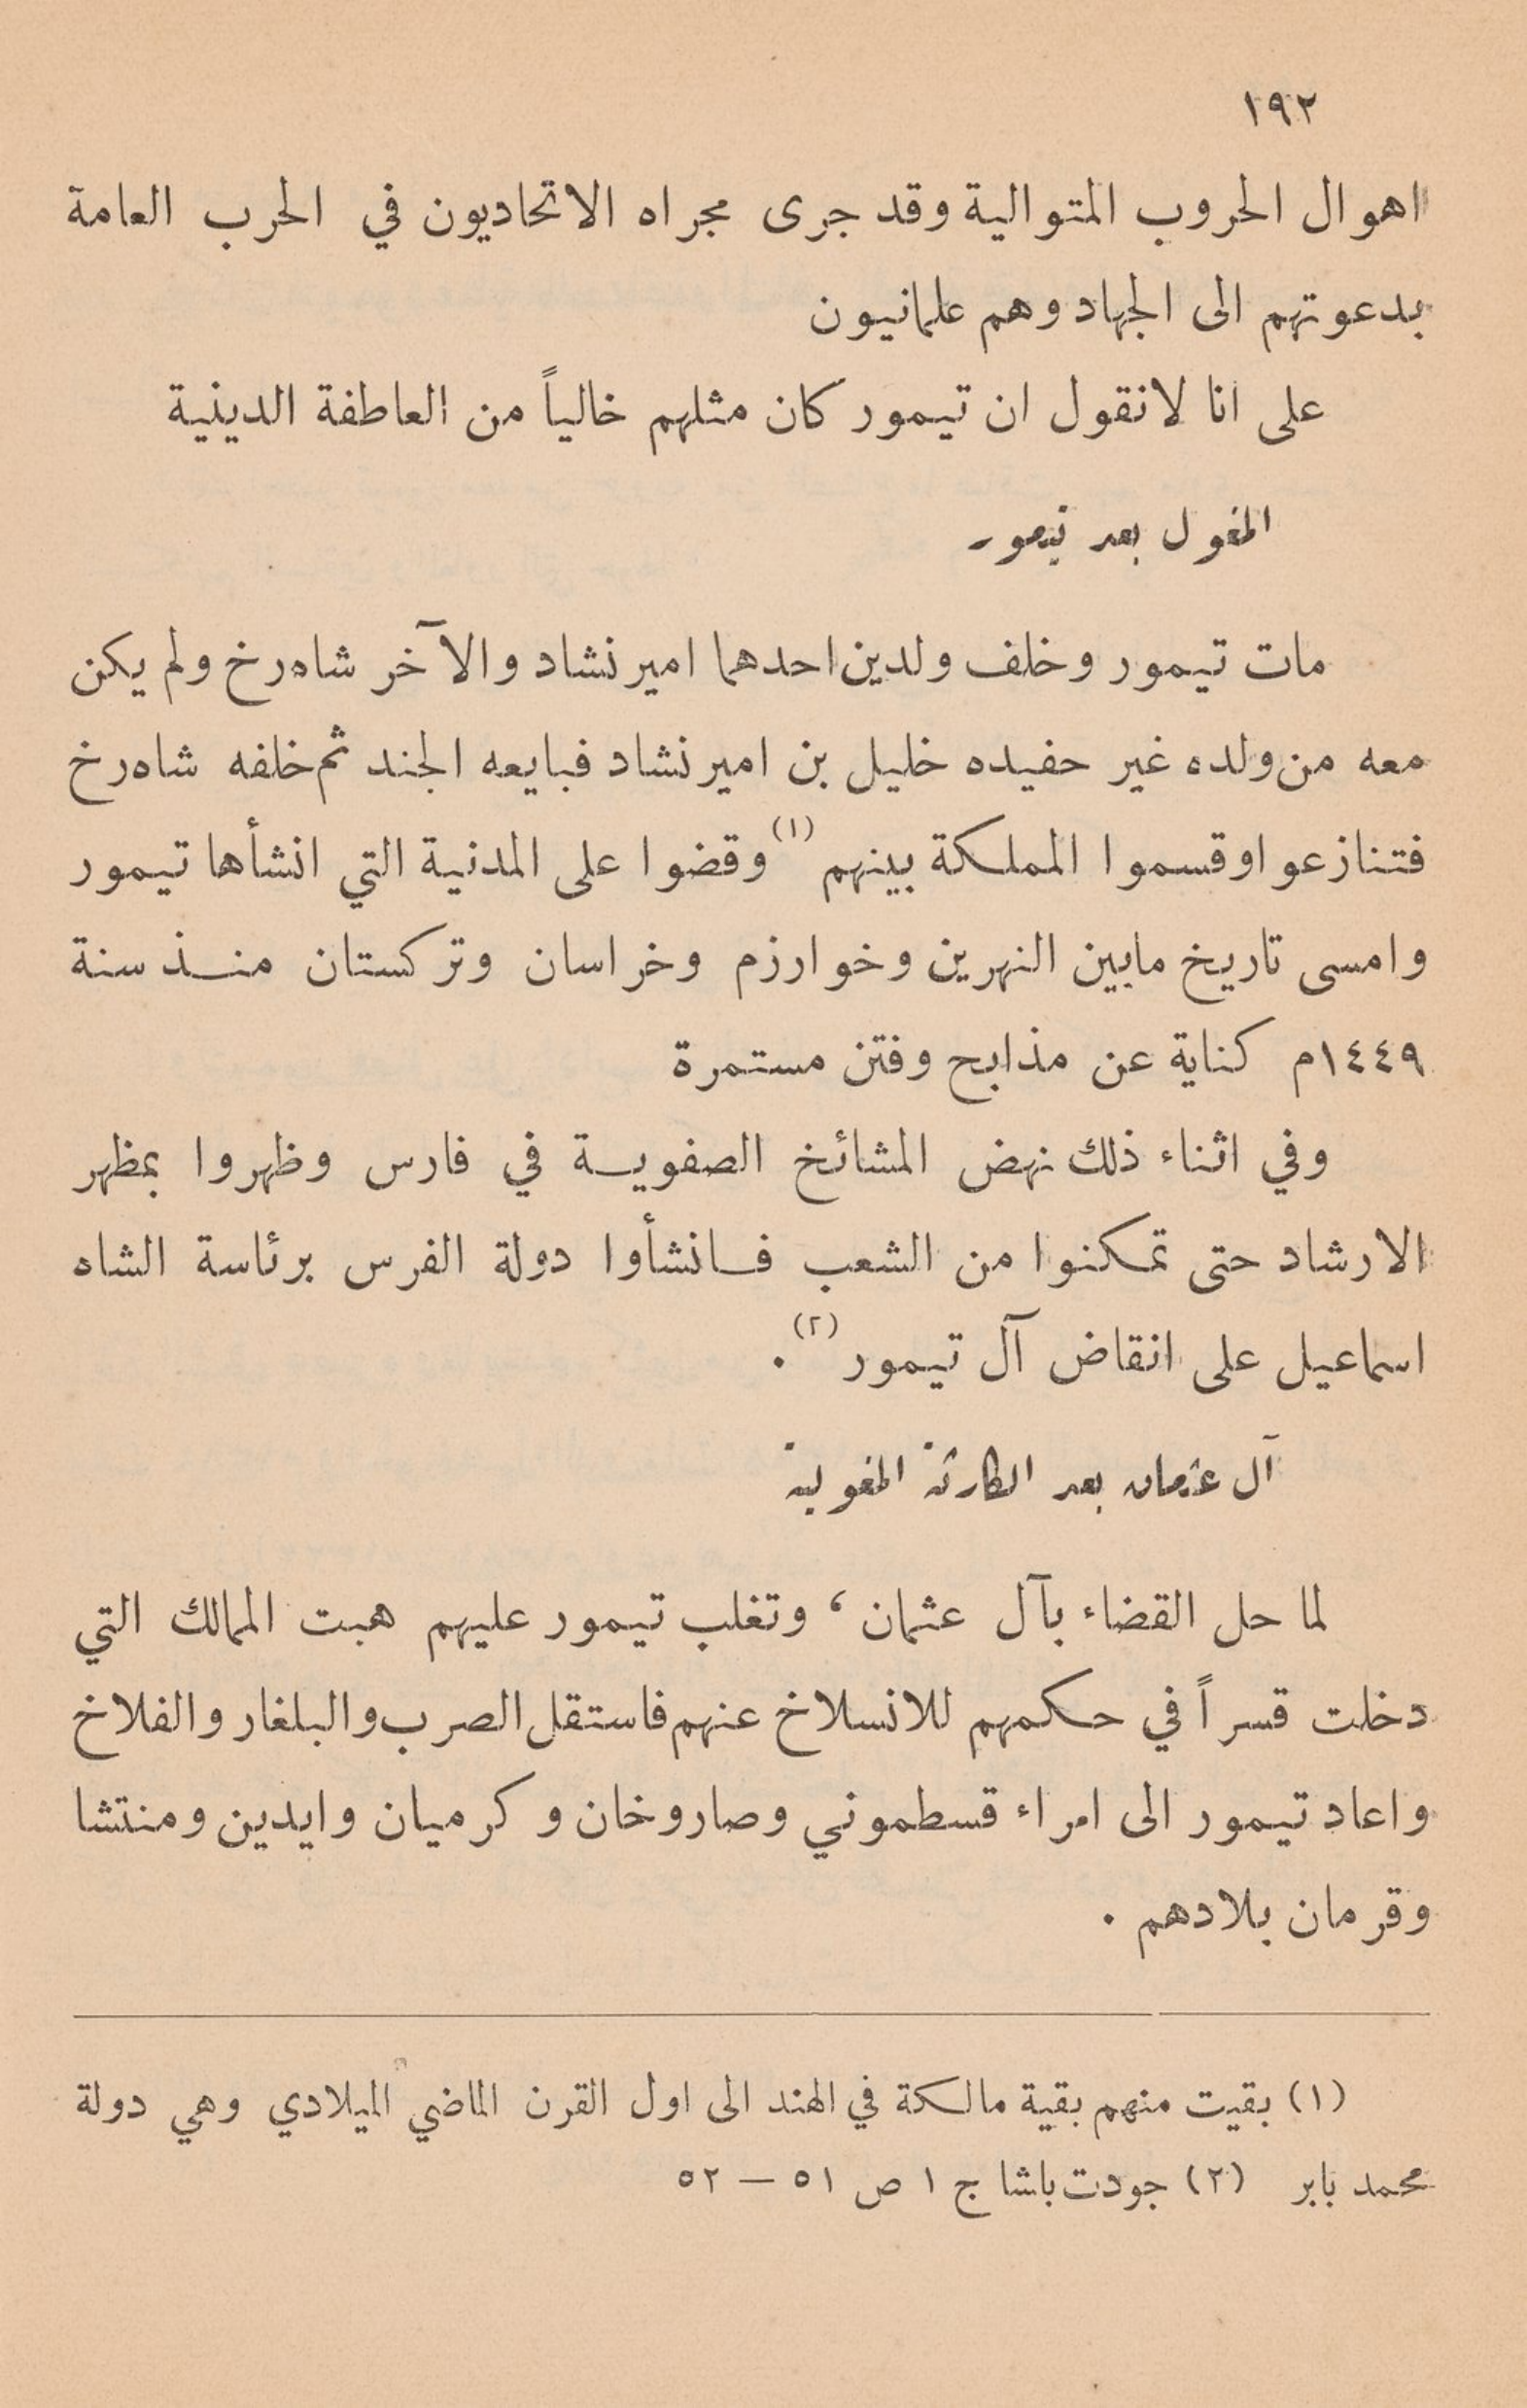 ١٩٢
اهوال الحروب المتوالية وقد جرى مجراه الاتحاديون في الحرب العامة
بدعوتهم الى الجهاد وهم علمانيون
على انا لانقول ان تيمور كان مثلهم خالياً من العاطفة الدينية
المغول بعد تيمور
مات تيمور وخلف ولدين احدهما اميرنشاد والآخر شاه رخ ولم يكن
معه من ولده غير حفيده خليل بن اميرنشاد فبايعه الجند ثم خلفه شاه رخ
فتنازعوا وقسموا المملكة بينهم (١) وقضوا على المدنية التي انشأها تيمور
وامسى تاريخ مابين النهرين وخوارزم وخراسان وتركستان منذ سنة
١٤٤٩م كناية عن مذابح وفتن مستمرة
وفي اثناء ذلك نهض المشائخ الصفوية في فارس وظهروا بمظهر
الارشاد حتى تمكنوا من الشعب فانشأوا دولة الفرس برئاسة الشاه
اسماعيل على انقاض آل تيمور (٢) .
آل عثمان بعد الكارثة المغولية
لما حل القضاء بآل عثمان ، وتغلب تيمور عليهم هبت الممالك التي
دخلت قسراً في حكمهم للانسلاخ عنهم فاستقل الصرب والبلغار والفلاخ
واعاد تيمور الى امراء قسطموني وصاروخان وكرميان وايدين ومنتشا
وقرمان بلادهم .
(١) بقيت منهم بقية مالكة في الهند الى اول القرن الماضي الميلادي وهي دولة
محمد بابر (٢) جودت باشا ج ١ ص ٥١ — ٥٢